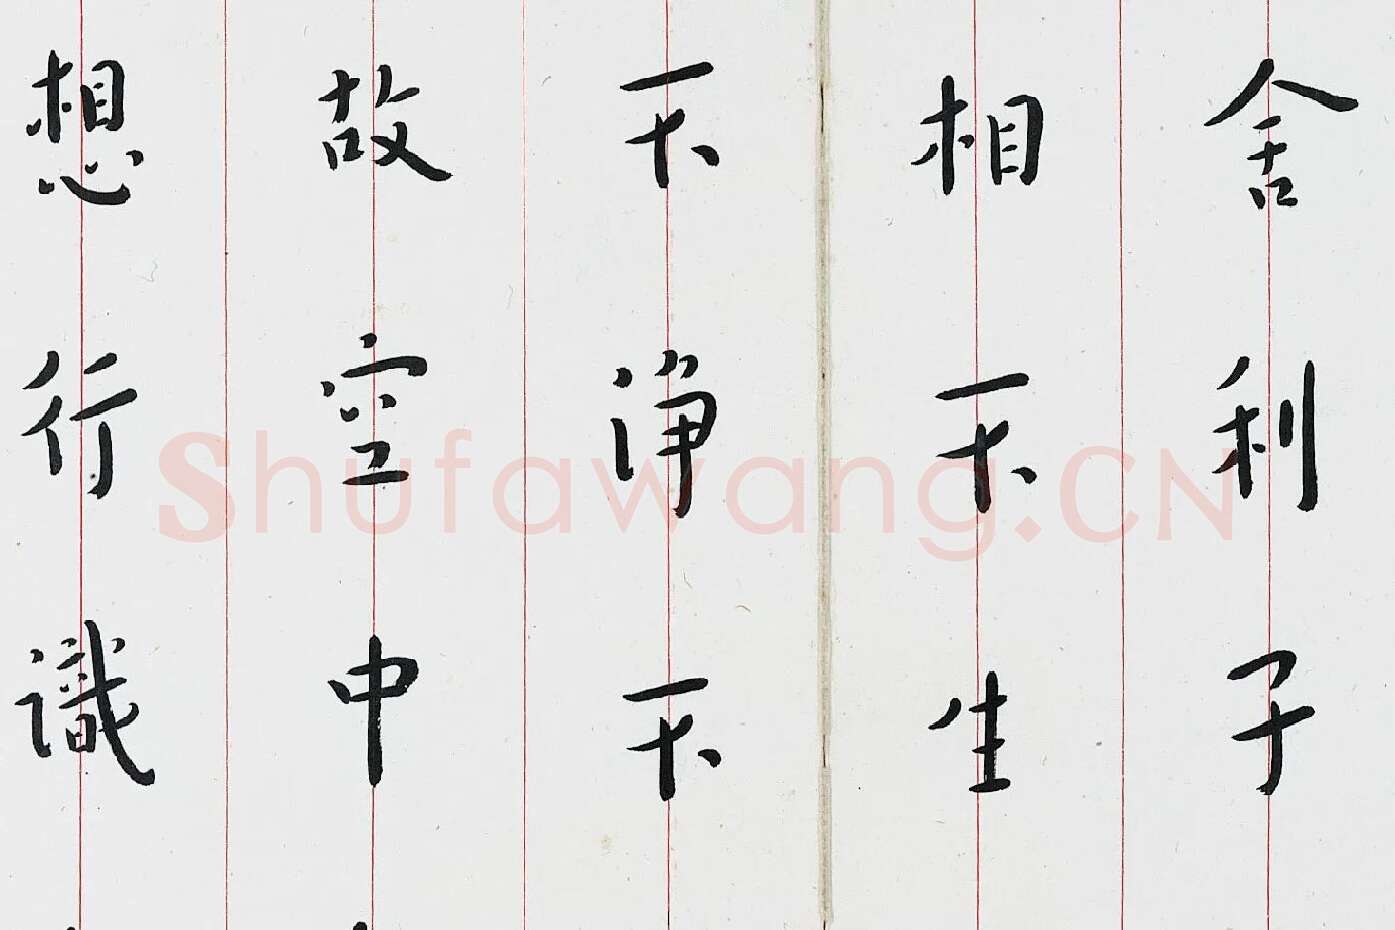 舍利子
相不生
不淨不
故空中
想行識
Shufawang.CN